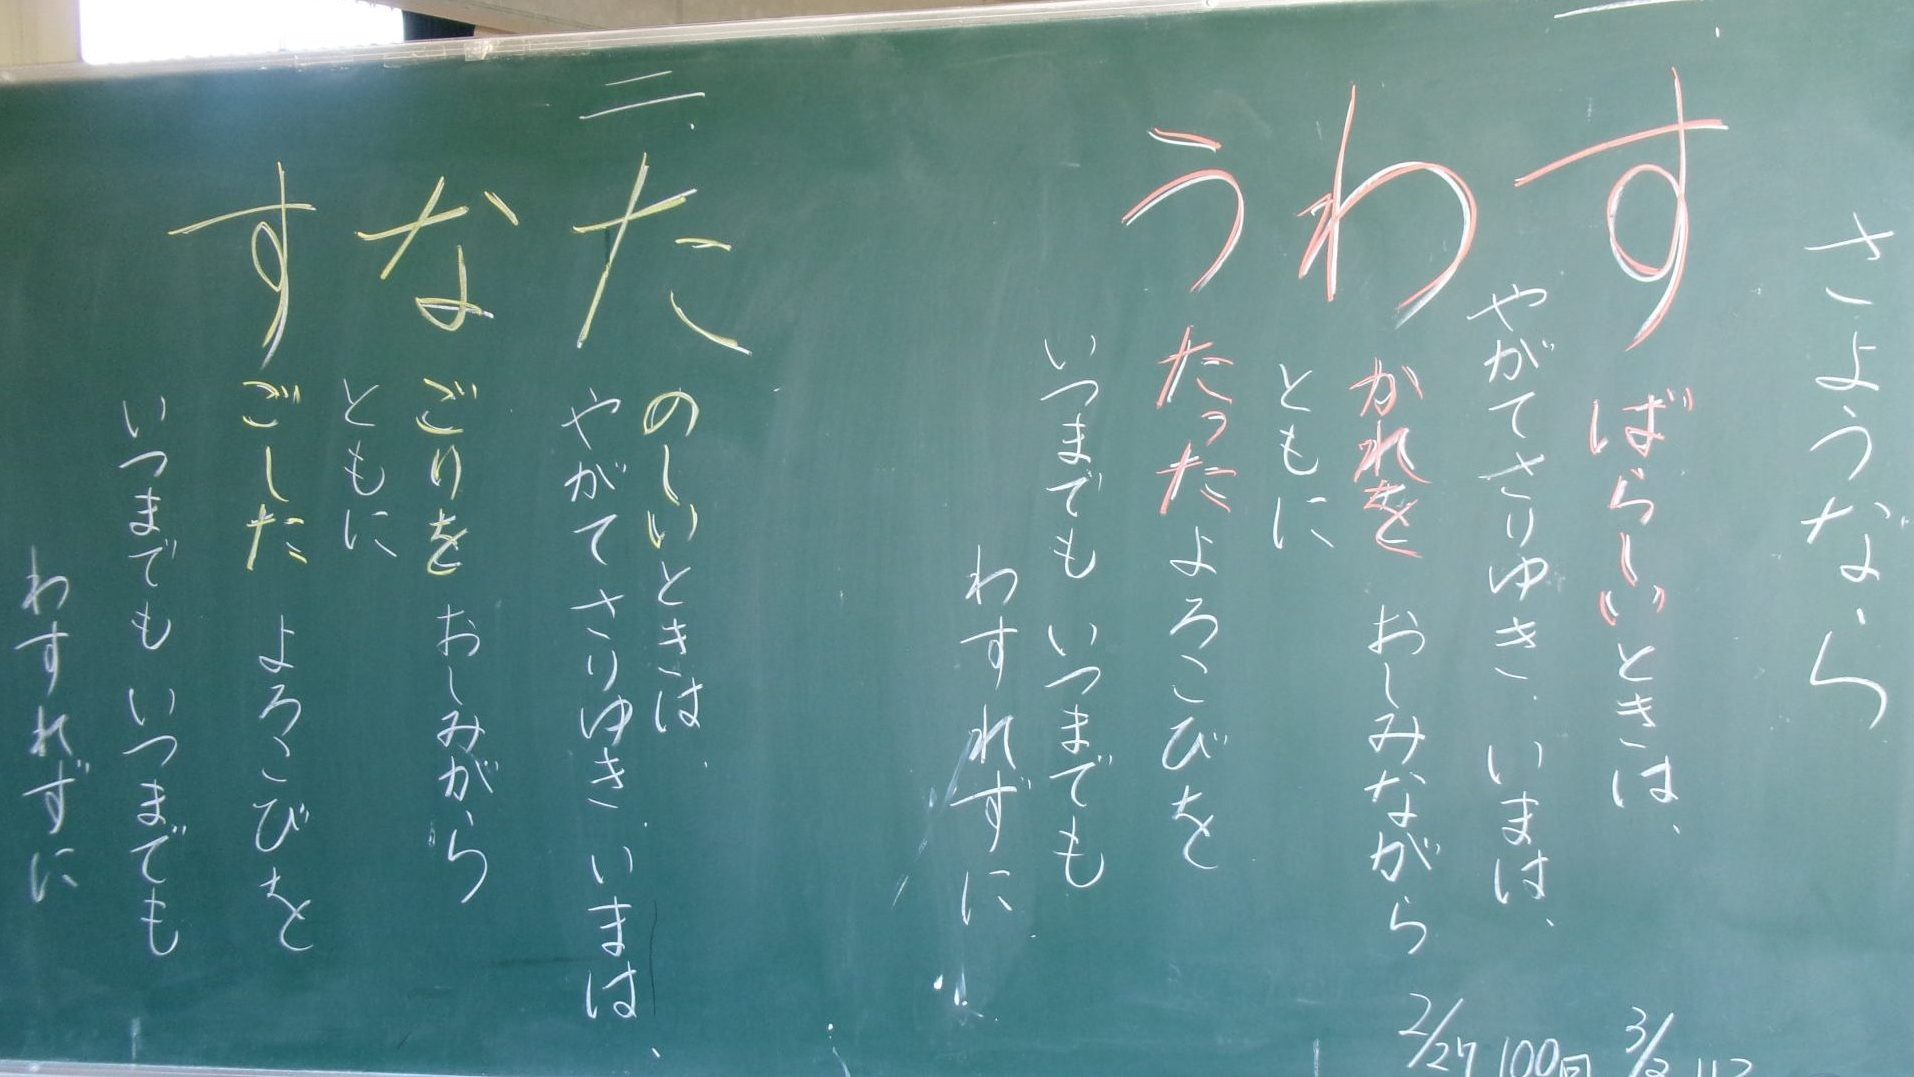 さようなら
一、
すばらしいときは、
やがてさりゆき、いまは、
わかれを おしみながら
ともに
うたったよろこびを
いつまでも いつまでも
わすれずに
二、
たのしいときは、
やがてさりゆき、いまは、
なごりを おしみがら
ともに
すごした よろこびを
いつまでも いつまでも
わすれずに
2/27 100回